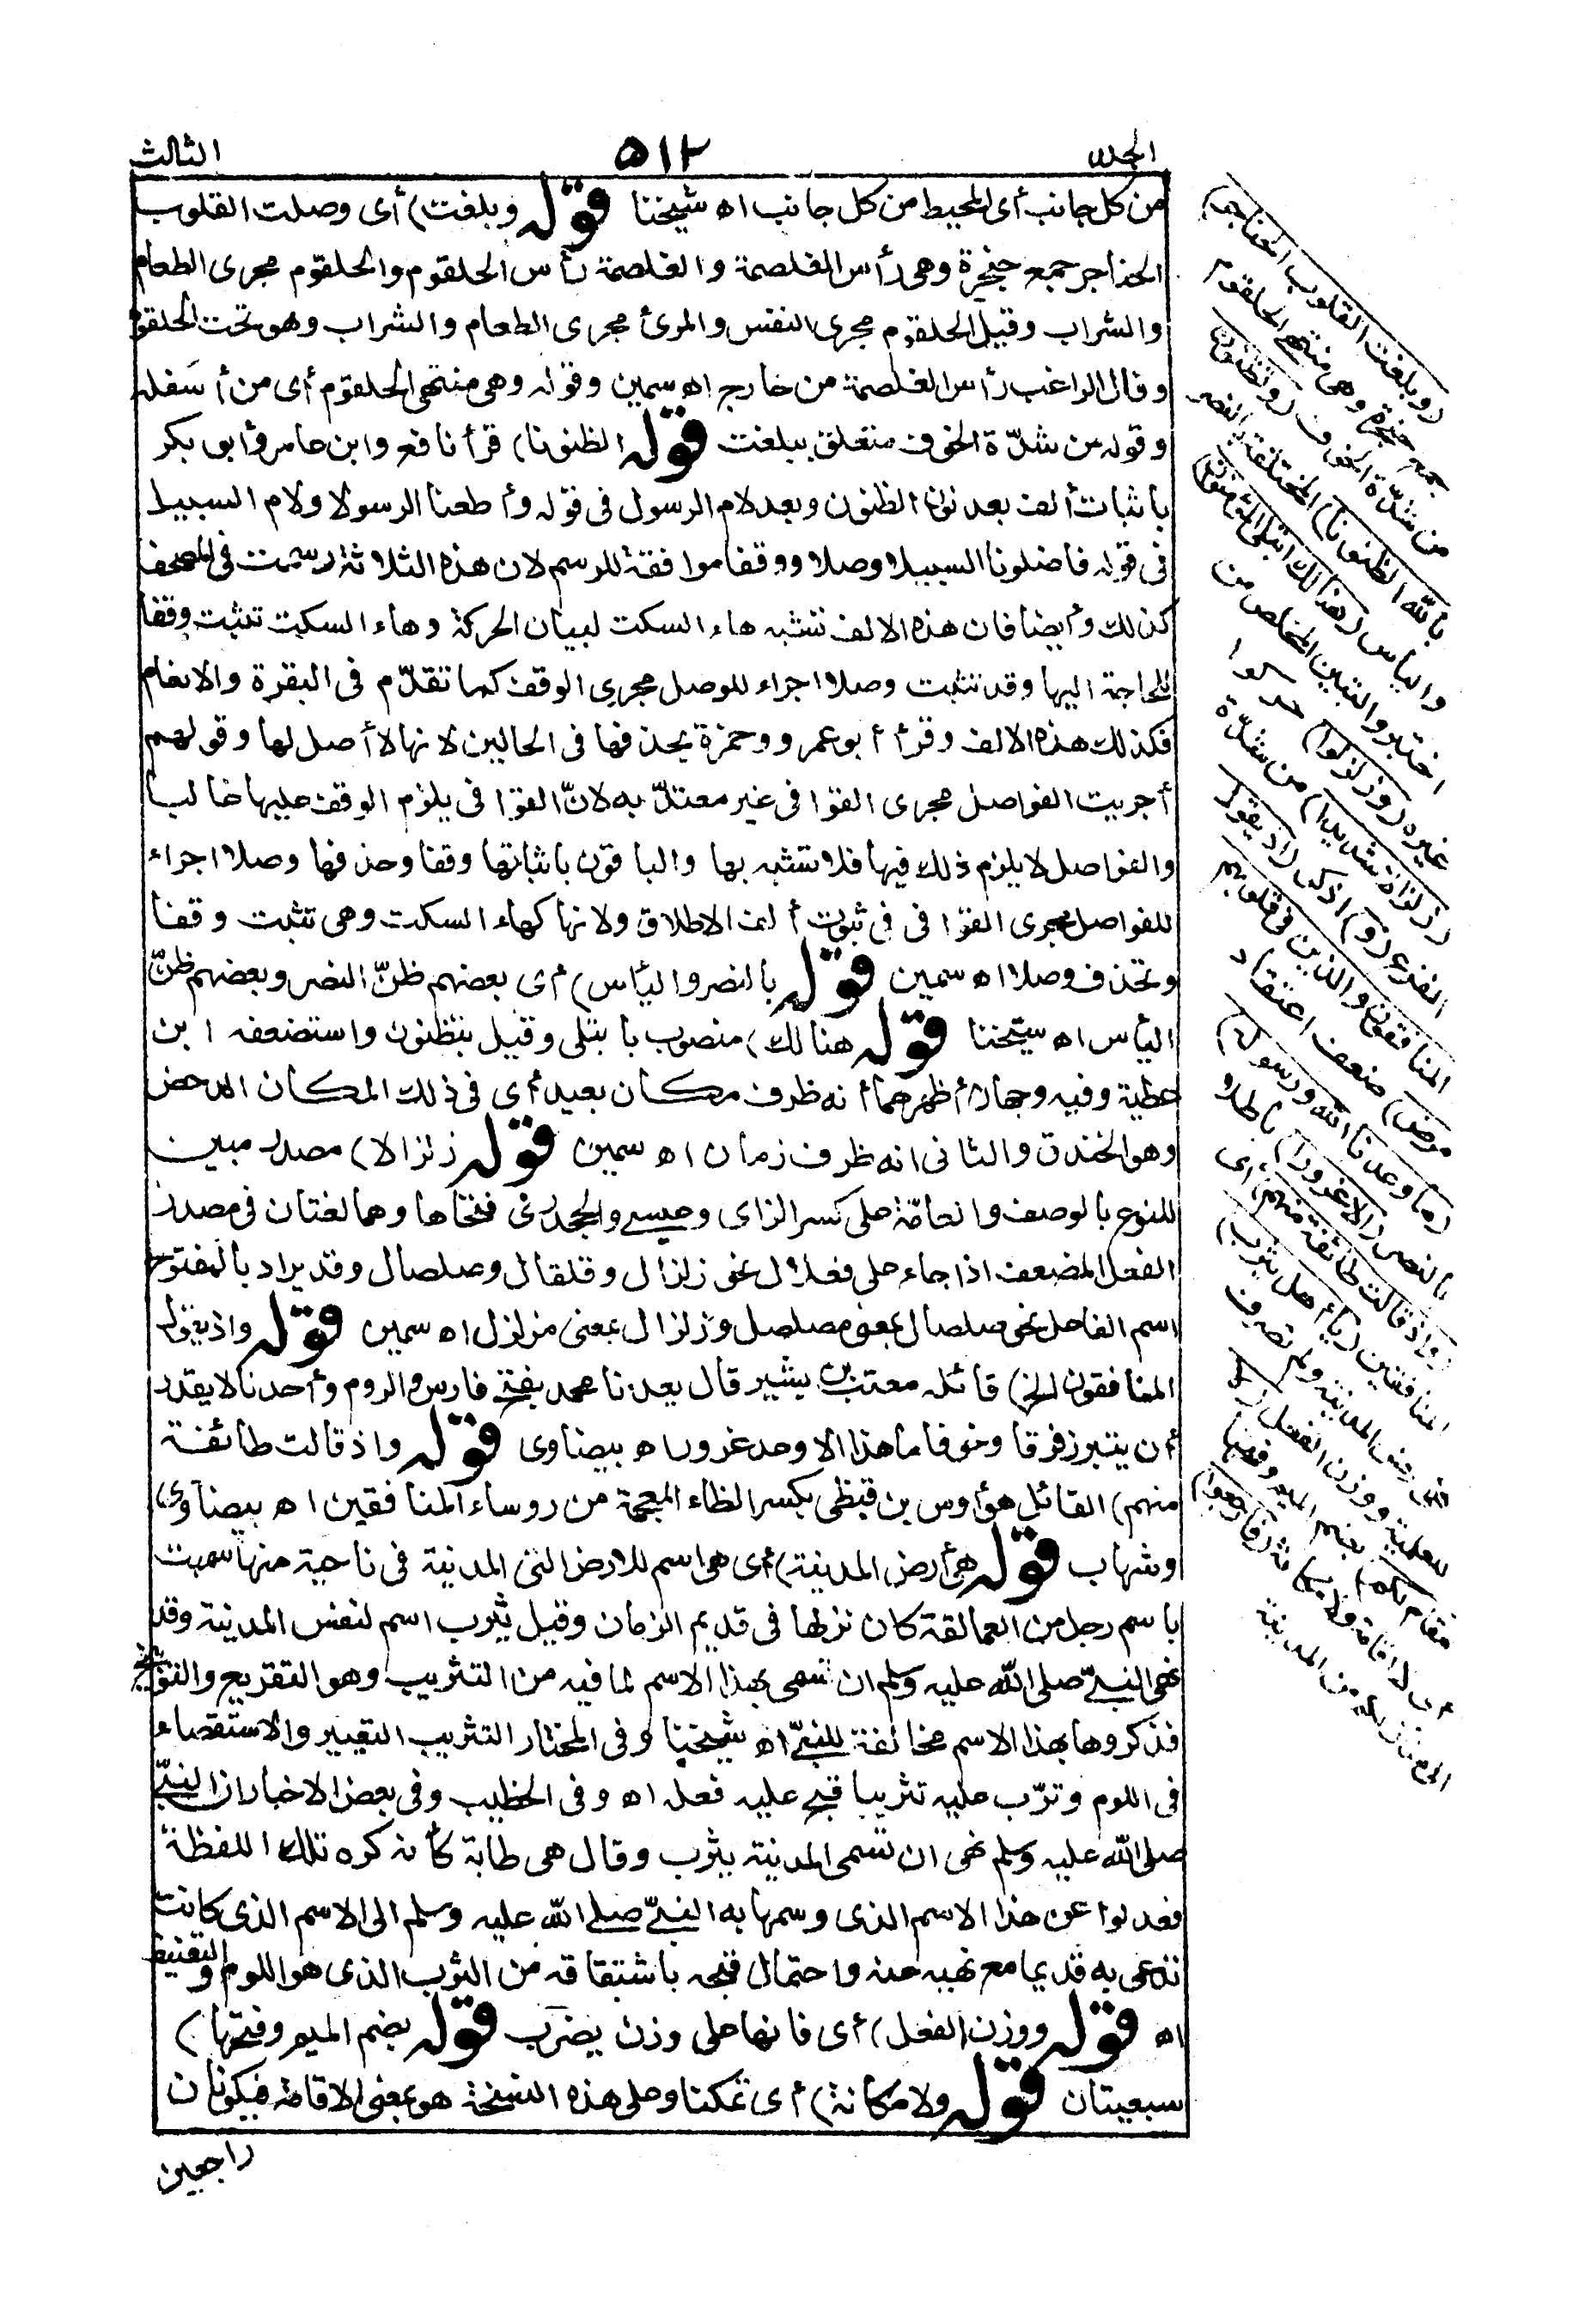 الجلد
٥١٢
الثالث
من كل جانب أى المحيط من كل جانب اه شيخنا قوله وبلغت) أى وصلت القلوب
الحناجر جمع حنجرة وهى رأس الغلصمة والغلصمة رأس الحلقوم والحلقوم مجرى الطعام
والشراب وقيل الحلقوم مجرى النفس والمرئ مجرى الطعام والشراب وهو تحت الحلقوم
وقال الراغب رأس الغلصمة من خارج اه سمين وقوله وهى منتهى الحلقوم أى من أسفله
وقوله من شدّة الخوف متعلق ببلغت قوله الظنونا) قرأ نافع وابن عامر وأبو بكر
باثبات ألف بعد نون الظنون وبعد لام الرسول فى قوله وأطعنا الرسولا ولام السبيل
فى قوله فاضلونا السبيلا وصلا ووقفا موافقة للرسم لان هذه الثلاثة رسمت فى المصحف
كذلك وأيضا فان هذه الالف تشبه هاء السكت لبيان الحركة وهاء السكت تثبت وقفا
للحاجة اليها وقد تثبت وصلا اجراء للوصل مجرى الوقف كما تقدّم فى البقرة والانعام
فكذلك هذه الالف وقرأ أبو عمرو وحمزة بحذفها فى الحالين لانها لا أصل لها وقولهم
أجريت الفواصل مجرى القوافى غير معتدّ به لانّ القوافى يلزم الوقف عليها غالبا
والفواصل لا يلزم ذلك فيها فلا تشبه بها والباقون باثباتها وقفا وحذفها وصلا اجراء
للفواصل مجرى القوافى فى ثبوت ألف الاطلاق ولانها كهاء السكت وهى تثبت وقفا
وتحذف وصلا اه سمين قوله بالنصر والياس) أى بعضهم ظنّ النصر وبعضهم ظنّ
الياس اه شيخنا قوله هنالك) منصوب بابتلى وقيل بتظنون واستضعفه ابن
عطية وفيه وجهان أظهرهما أنه ظرف مكان بعيد أى فى ذلك المكان الدحض
وهو الخندق والثانى انه ظرف زمان اه سمين قوله زلزالا) مصدر مبين
للنوع بالوصف والعامّة على كسر الزاى وعيسى والجحدرى فتحاها وهما لغتان فى مصدر
الفعل المضعف اذا جاء على فعلال نحو زلزال وقلقال وصلصال وقد يراد بالمفتوح
اسم الفاعل نحو صلصال بمعنى مصلصل وزلزال بمعنى مزلزل اه سمين قوله واذ يقول
المنافقون الخ) قائله معتب بن بشير قال يعدنا محمد بفتح فارس والروم وأحدنا لا يقدر
أن يتبرز فرقا وخوفا ما هذا الا وعد غرور اه بيضاوى قوله واذ قالت طائفة
منهم) القائل هو أوس بن قيظى بكسر الظاء المعجمة من روساء المنافقين اه بيضاوى
وشهاب قوله هى أرض المدينة) أى هى اسم للارض التى المدينة فى ناحية منها سميت
باسم رجل من العمالقة كان نزلها فى قديم الزمان وقيل يثرب اسم لنفس المدينة وقد
نهى النبىّ صلى الله عليه وسلم ان تسمى بهذا الاسم لما فيه من التثريب وهو التقريع والتوبيخ
فذكروها بهذا الاسم مخالفة للنبىّ اه شيخنا وفى المختار التثريب التعيير والاستقصاء
فى اللوم وثرّب عليه تثريبا قبح عليه فعله اه وفى الخطيب وفى بعض الاخبار ان النبىّ
صلى الله عليه وسلم نهى ان تسمى المدينة يثرب وقال هى طابة كأنه كره تلك اللفظة
فعدلوا عن هذا الاسم الذى وسمها به النبىّ صلى الله عليه وسلم الى الاسم الذى كانت
تدعى به قديما مع نهيه عنه واحتمال قبحه باشتقاقه من الثرب الذى هو اللوم والتعنيف
اه قوله ووزن الفعل) أى فانها على وزن يضرب قوله بضم الميم وفتحها)
سبعيتان قوله ولا مكانة) أى تمكنا وعلى هذه النسخة هو بمعنى الاقامة فيكونان
راجعين
(وبلغت القلوب الحناجر)
جمع حنجرة وهى منتهى الحلقوم
من شدّة الخوف (وتظنون
بالله الظنونا) المختلفة بالنصر
والياس (هنالك ابتلى المؤمنون)
اختبروا ليتبين المخلص من
غيره (وزلزلوا) حركوا
(زلزالا شديدا) من شدّة
الفزع (و) اذكر (اذ يقول
المنافقون والذين فى قلوبهم
مرض) ضعف اعتقاد
(ما وعدنا الله ورسوله)
بالنصر (الا غرورا) باطلا
(واذ قالت طائفة منهم) أى
المنافقين (يا أهل يثرب)
هى أرض المدينة ولم تصرف
للعلمية ووزن الفعل (لا
مقام لكم) بضم الميم وفتحها
أى لا اقامة ولا مكانة (فارجعوا)
الى منازلكم من المدينة